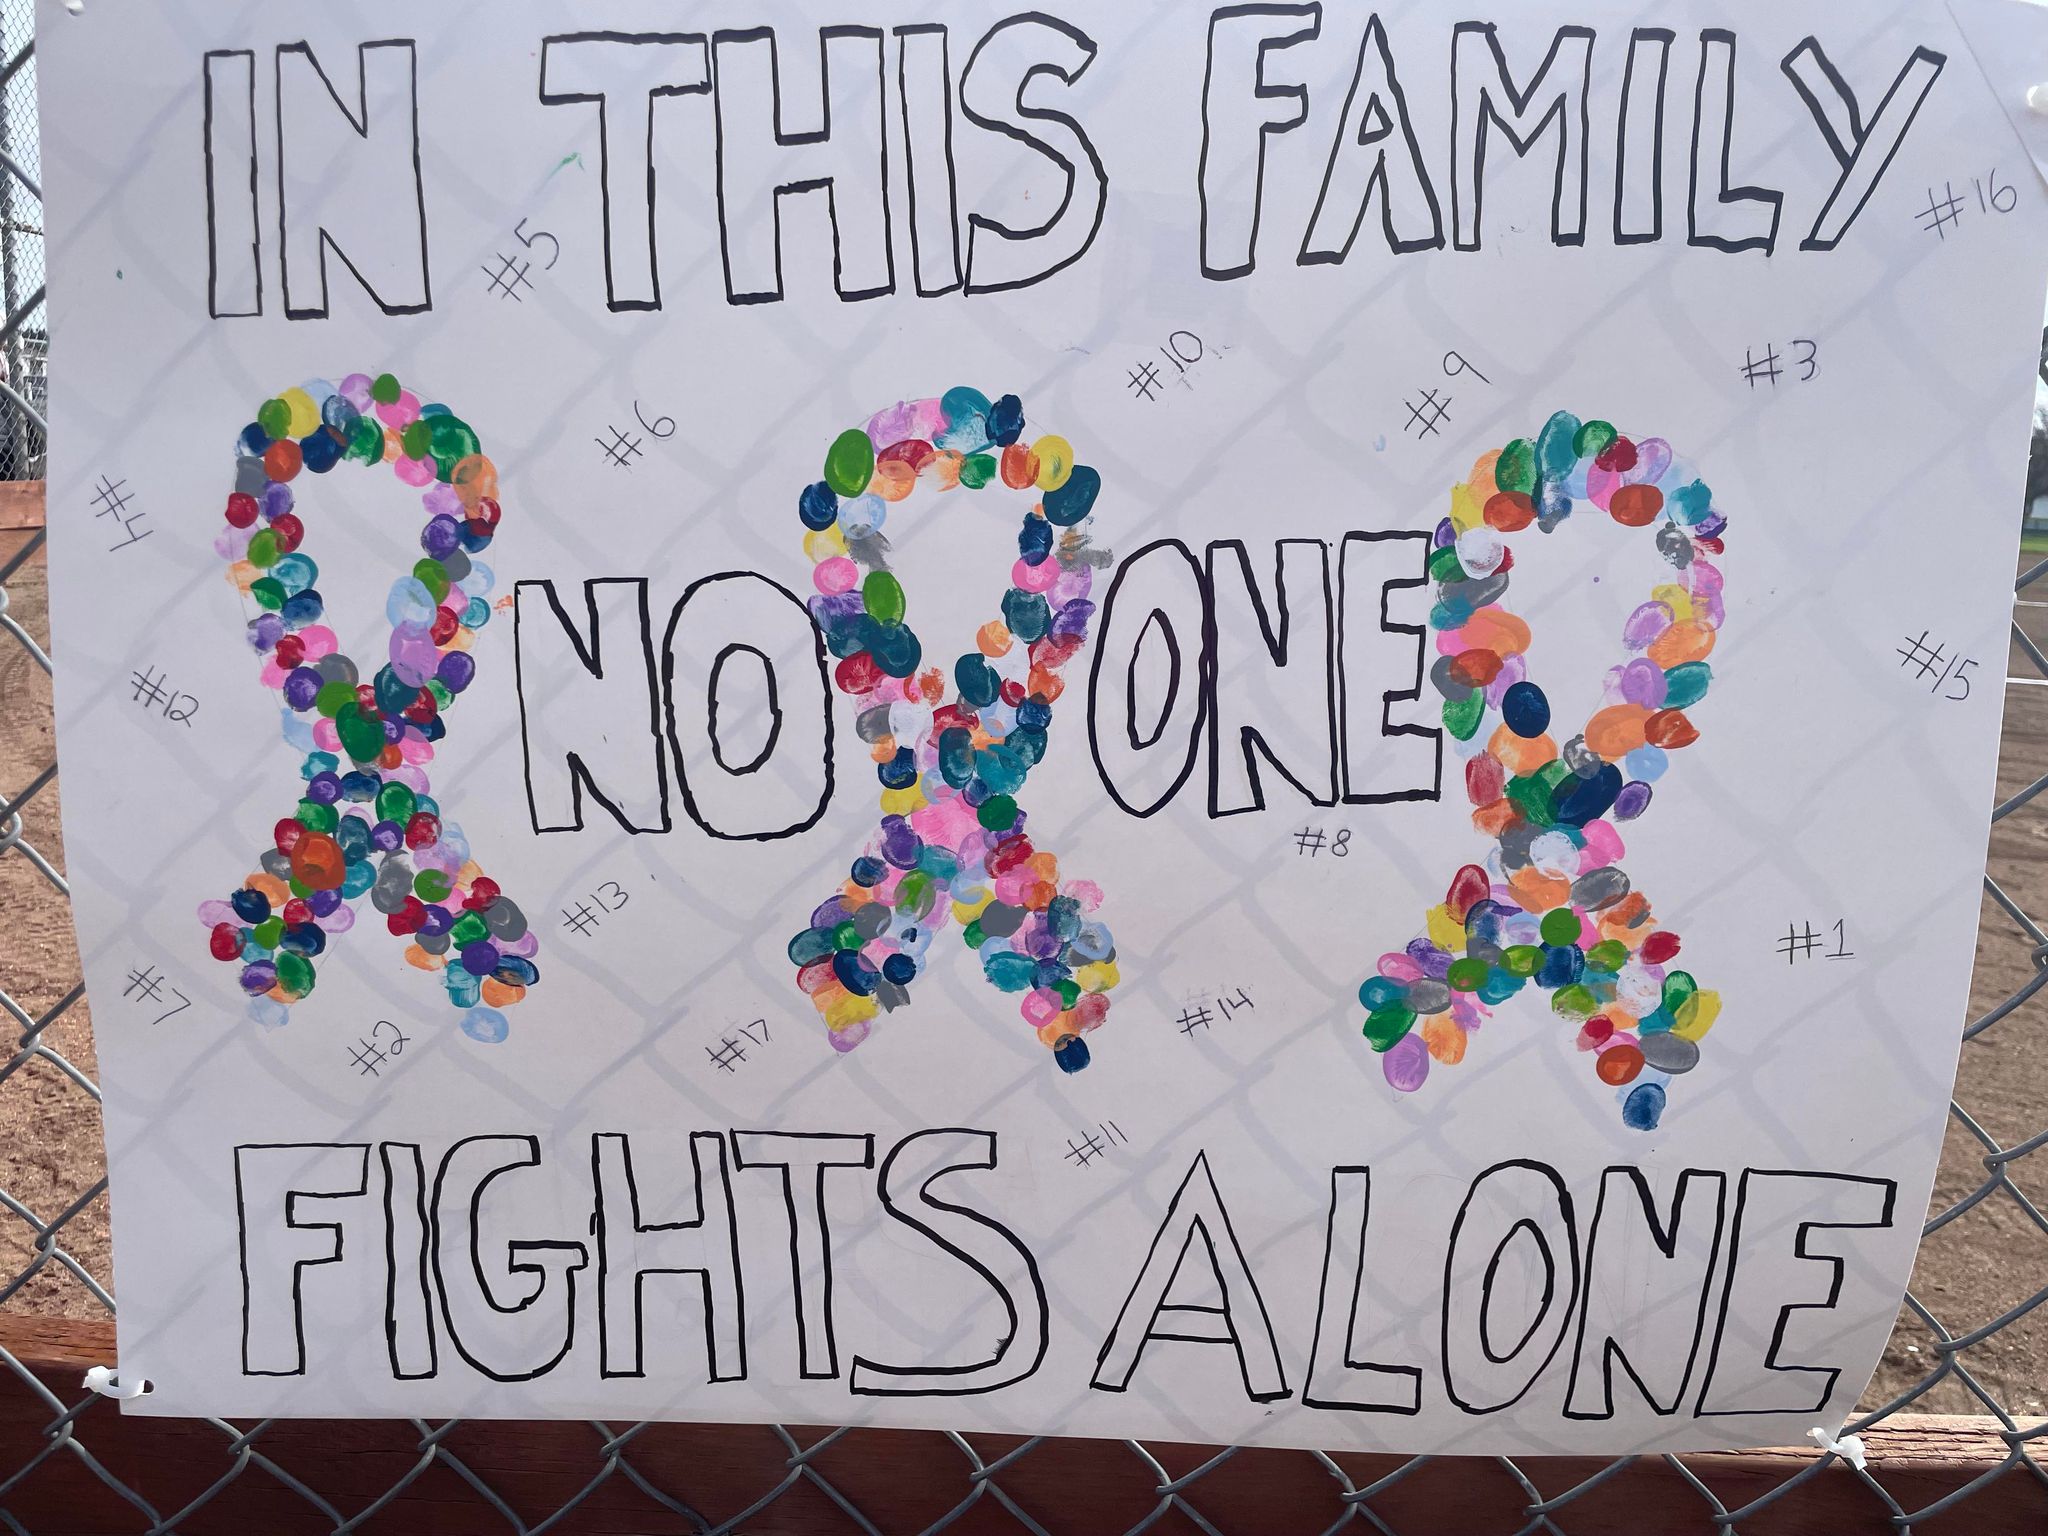 IN THIS FAMILY
#16
#5
#10
#9
#3
#6
#4
NO ONE
#12
#15
#8
#13
#1
#7
#2
#17
#14
#11
FIGHTS ALONE